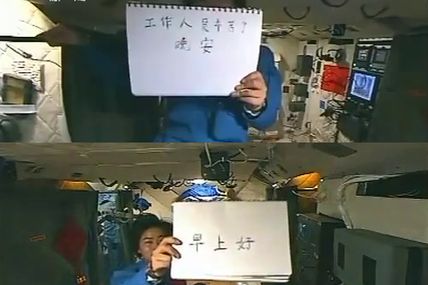 工作人员辛苦了
晚安
早上好